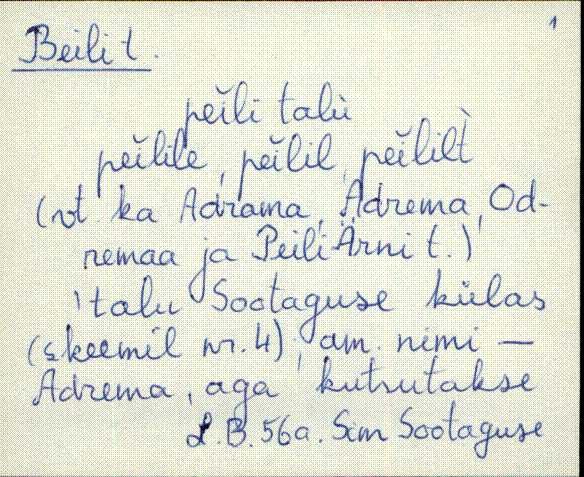 1
Beili t.
peĭli talù
peĭlile, peĭlil, peĭlilt̀
(vt ka Adrama, Ädrema, Od-
remaa ja Peili Ärni t.)
'talu Sootaguse külas
(skeemil nr. 4), am. nimi —
Adrema, aga kutsutakse
L.B. 56a. Sim Sootaguse